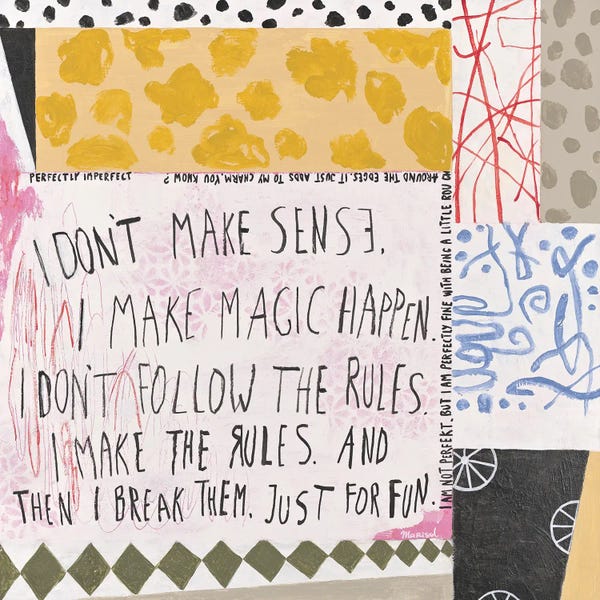 PERFECTLY IMPERFECT
I DON'T MAKE SENSE.
I MAKE MAGIC HAPPEN.
I DON'T FOLLOW THE RULES.
I MAKE THE RULES. AND
THEN I BREAK THEM. JUST FOR FUN.
I AM NOT PERFEKT. BUT I AM PERFECTLY FINE WITH BEING A LITTLE ROUGH
AROUND THE EDGES. IT JUST ADDS TO MY CHARM YOU KNOW ?
Marisol